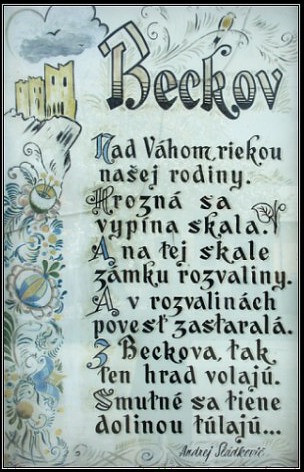 Beckov
Nad Váhom, riekou
našej rodiny.
Hrozná sa
vypína skala.
A na tej skale
zámku rozvaliny.
A v rozvalinách
povesť zastaralá.
Z Beckova, tak
ten hrad volajú.
Smutné sa tiene
dolinou túlajú...
Andrej Sládkovič